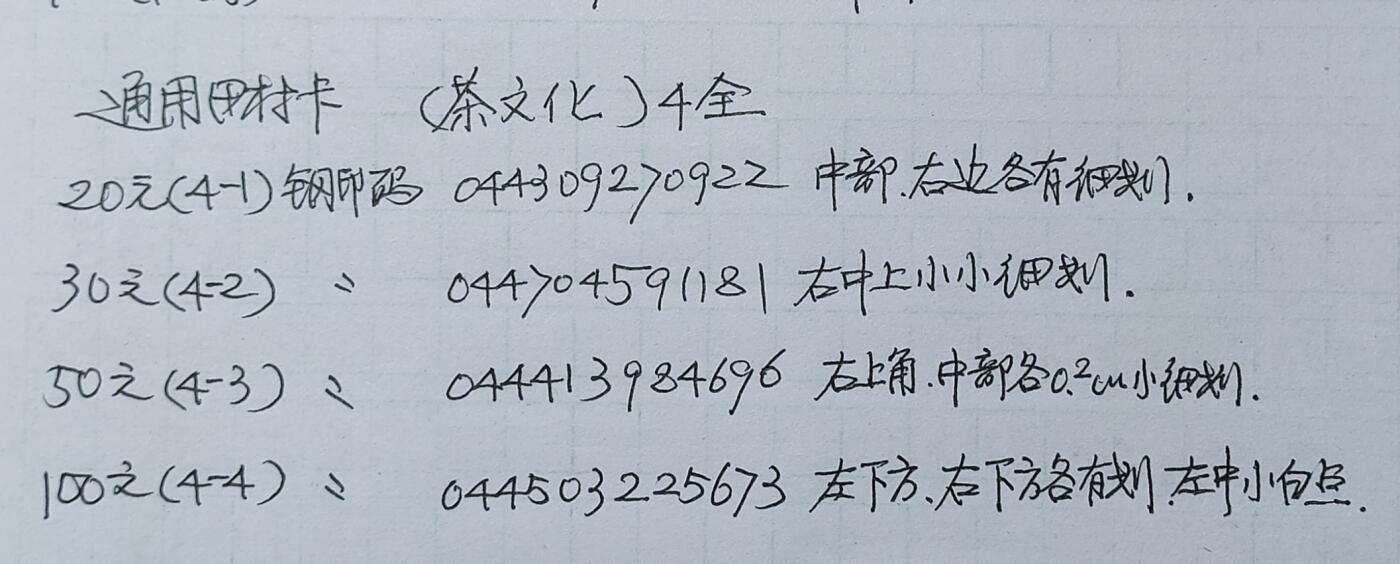 通用田村卡 (茶文化)4全
20元(4-1)钢印码 044309270922 中部.右边各有细划.
30元(4-2) 〃 044704591181 右中上小小细划.
50元(4-3) 〃 044413984696 右上角.中部各0.2cm小细划.
100元(4-4) 〃 044503225673 左下方、右下方各有划.左中小白点.